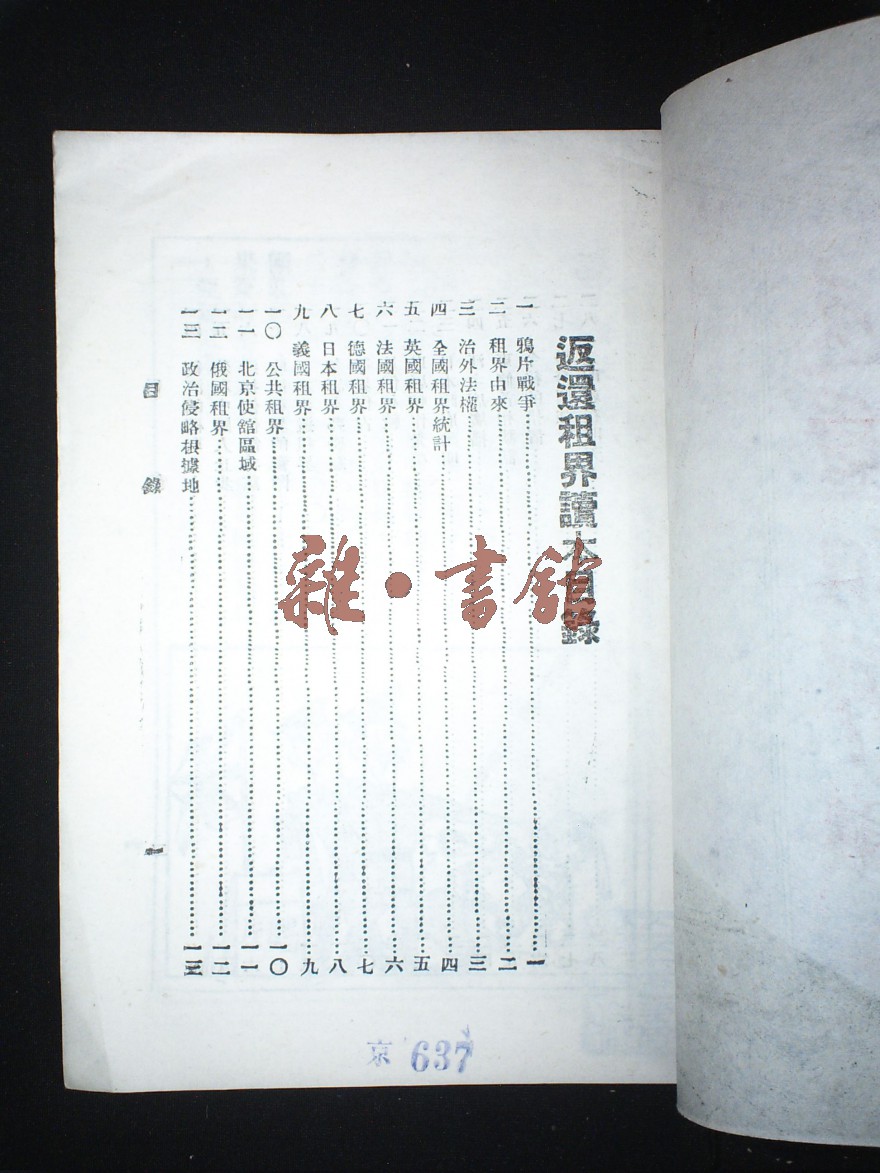 返還租界讀本目錄
一 鴉片戰爭……一
二 租界由來……二
三 治外法權……三
四 全國租界統計……四
五 英國租界……五
六 法國租界……六
七 德國租界……七
八 日本租界……八
九 義國租界……九
一〇 公共租界……一〇
一一 北京使館區域……一一
一二 俄國租界……一二
一三 政治侵略根據地……一三
目錄 一
雜·書館
京 637